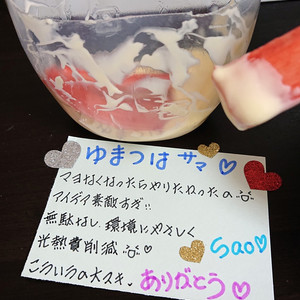 ゆまつは サマ♡
マヨなくなったらやりたかったの
アイデア素敵すぎ!!
無駄なし、環境にやさしく
光熱費削減
Sao♡
こういうの大スキ、
ありがとう♡